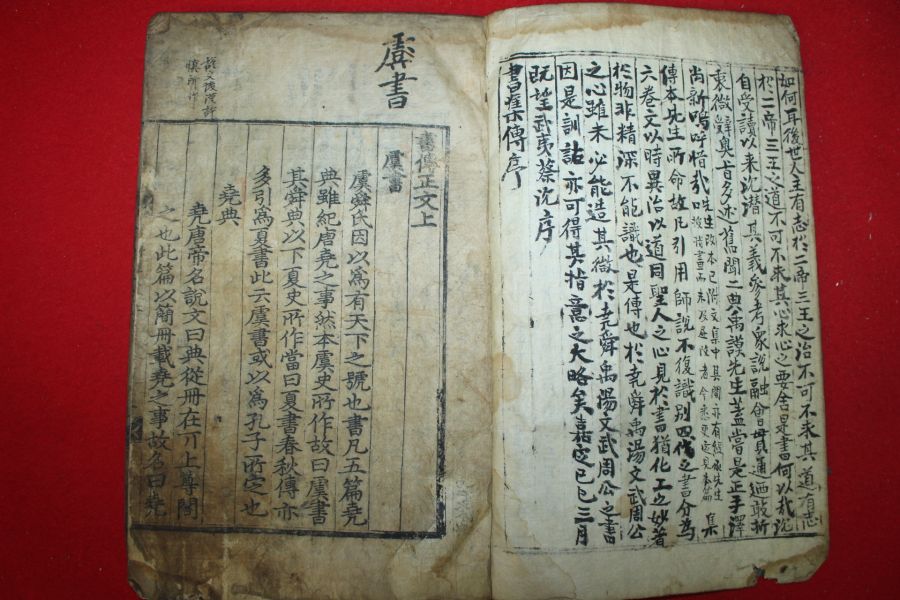 如何耳後世人主有志於二帝三王之治不可不求其道有志
於二帝三王之道不可不求其心求心之要舍是書何以哉沈
自受讀以來沈潛其義參考衆說融會貫通迺敢折
衷微辭奧旨多述舊聞二典禹謨先生盖嘗是正手澤
尚新嗚呼惜哉先生改本已附文集中其間亦有經承先生口授指畫而未及盡改者今悉更定見本篇集
傳本先生所命故凡引用師說不復識別四代之書分爲
六卷文以時異治以道同聖人之心見於書猶化工之妙著
於物非精深不能識也是傳也於堯舜禹湯文武周公
之心雖未必能造其微於堯舜禹湯文武周公之書
因是訓詁亦可得其指意之大略矣嘉定己巳三月
既望武夷蔡沈序
書集傳序
虞書
說文後漢許
慎所作
書傳正文上
虞書
虞舜氏因以爲有天下之號也書凡五篇堯
典雖紀唐堯之事然本虞史所作故曰虞書
其舜典以下夏史所作當曰夏書春秋傳亦
多引爲夏書此云虞書或以爲孔子所定也
堯典
堯唐帝名說文曰典從冊在丌上尊閣
之也此篇以簡冊載堯之事故名曰堯